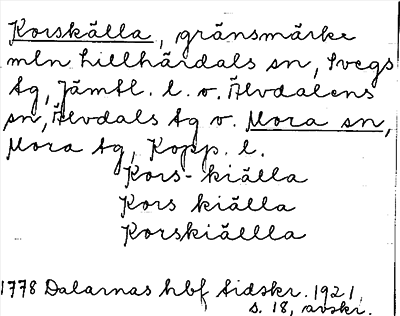 Korskälla, gränsmärke
mln Lillhärdals sn, Svegs
tg, Jämtl. l. o. Älvdalens
sn, Älvdals tg o. Mora sn,
Mora tg, Kopp. l.
Kors-kiälla
Kors kiälla
Korskiällla
1778 Dalarnas hbf tidskr. 1921,
s. 18, avskr.